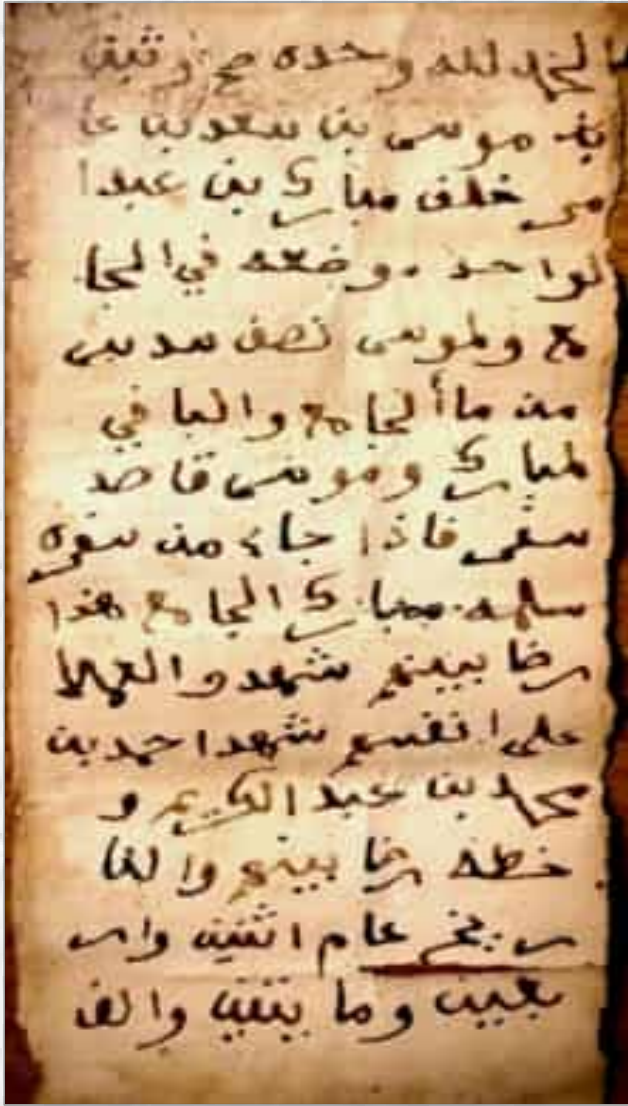 الحمد لله وحده صح وثبت
بن موسى بن سعد بن عا
مر خلف مبارك بن عبدا
لواحد موضعه في الجا
مع ولموسى نصف سدس
من مأ الجامع والبا في
لمبارك وموسى قاصد
سفر فاذا جاء من سفره
سلمه مبارك الجامع هذا
رضا بينهم شهدوا
على انفسهم شهد احمد بن
محمد بن عبد الكريم و
خطه رضا بينهم والتا
ريخ عام اثنين وار
بعين وما يتين والف